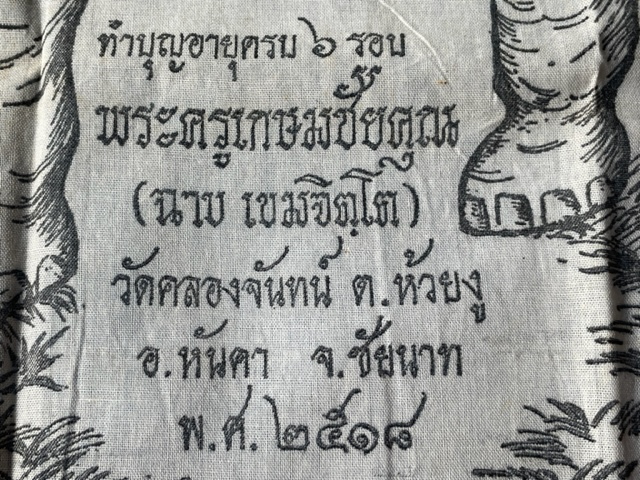 ทำบุญอายุครบ ๖ รอบ
พระครูเกษมชัยคุณ
(ฉาบ เขมจิตฺโต)
วัดคลองจันทน์ ต.ห้วยงู
อ.หันคา จ.ชัยนาท
พ.ศ. ๒๕๑๘